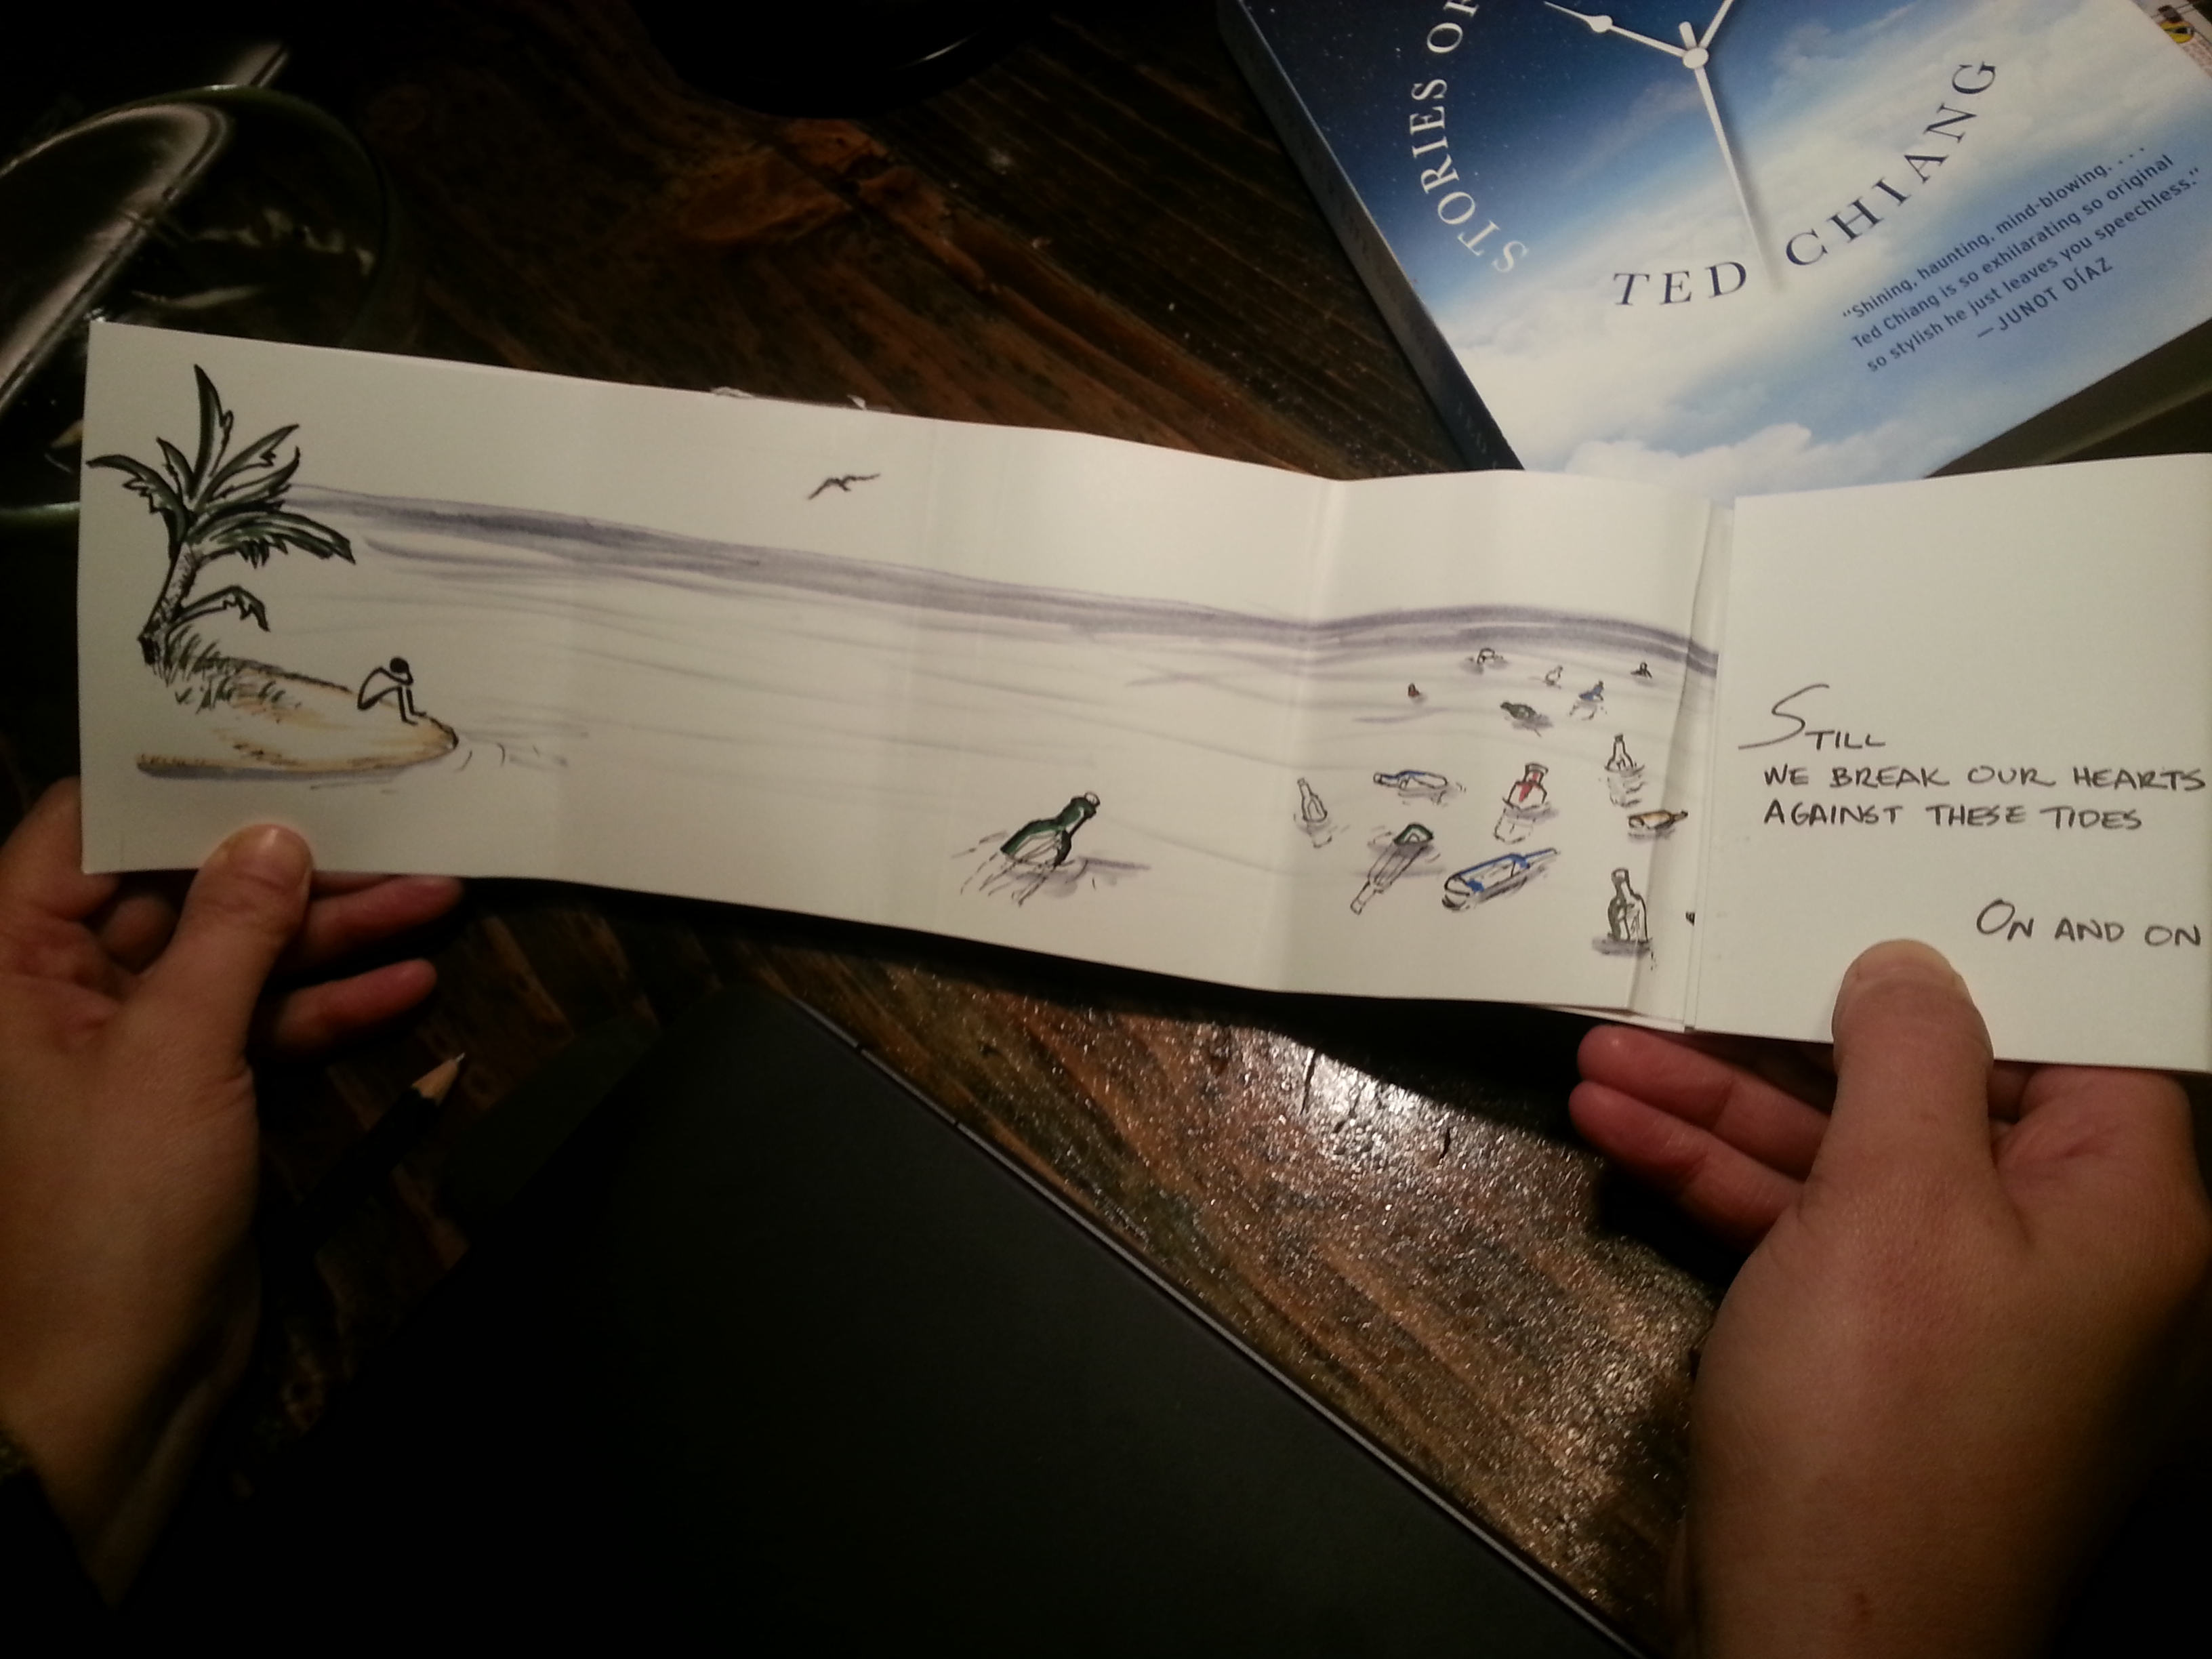 STORIES OF
TED CHIANG
“Shining, haunting, mind-blowing. . . .
Ted Chiang is so exhilarating so original
so stylish he just leaves you speechless.”
—JUNOT DÍAZ
STILL
WE BREAK OUR HEARTS
AGAINST THESE TIDES
ON AND ON